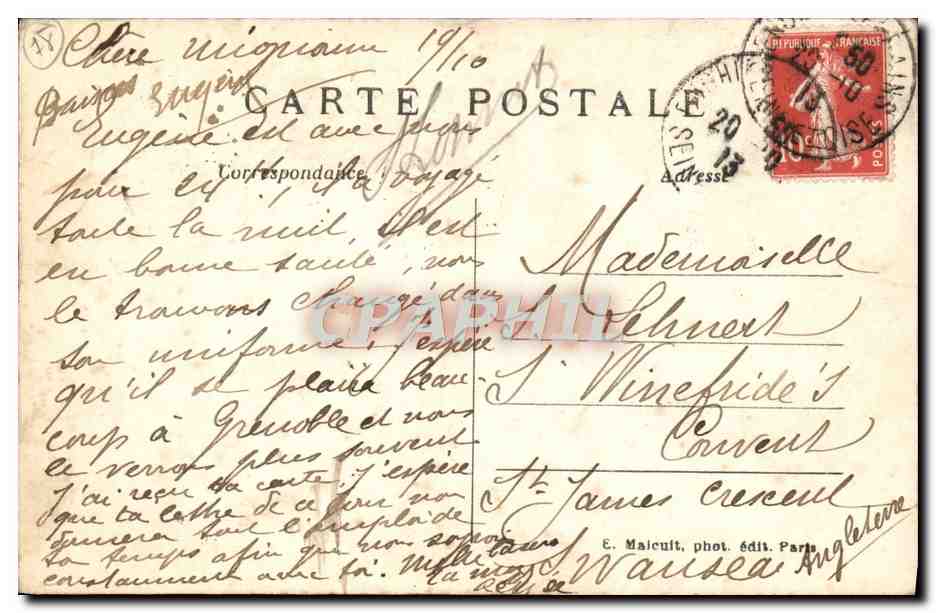 18
Chère mignonne 19/10
Baisers Eugène
CARTE POSTALE
Eugène est avec nous
Correspondance
Adresse
pour 24 h, il a voyagé
toute la nuit, il est
en bonne santé, nous
le trouvons changé dans
son uniforme, j'espère
qu'il se plaira beau-
coup à Grenoble et nous
le verrons plus souvent
J'ai reçu ta carte, j'espère
que ta lettre de ce jour nous
donnera tout l'emploi de
ton temps afin que nous soyons
constamment avec toi. Mille baisers
Ta mère
REPUBLIQUE FRANÇAISE
10c
POSTES
20
13
SEINE-ET-OISE
Mademoiselle
S. Lehnert
St Winefride's
Convent
St James Crescent
Swansea
Angleterre
E. Malcuit, phot. édit. Paris
CPAPHIL